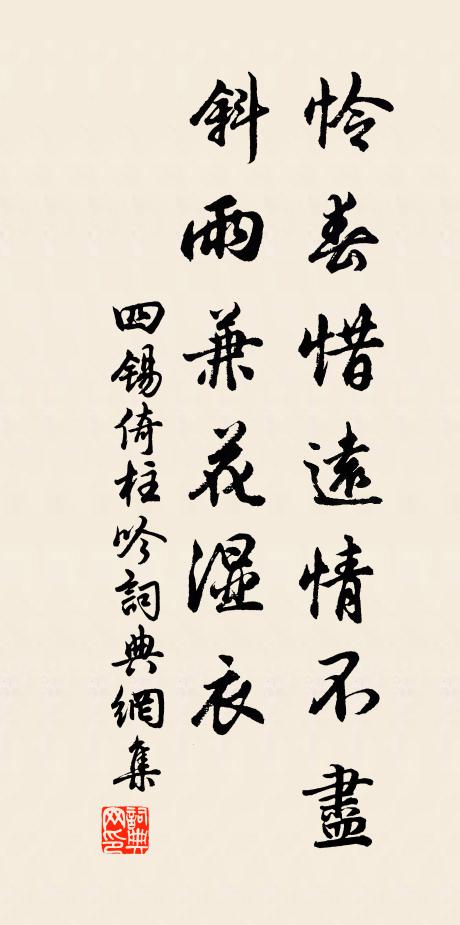 怜春惜遠情不盡
斜雨兼花濕衣
四錫倚柱吟詞典網集
詞典网印